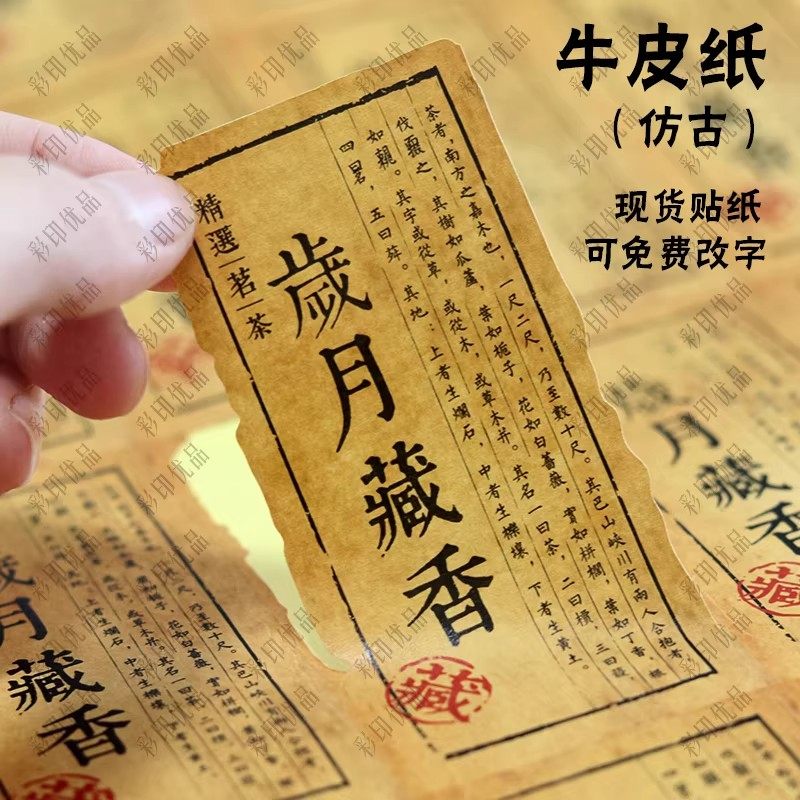 牛皮纸
（仿古）
现货贴纸
可免费改字
茶者,南方之嘉木也,一尺二尺,乃至数十尺。其巴山峽川有兩人合抱者,
伐之,其樹如瓜蘆,葉如梔子,花如白薔薇,實如栟櫚,葉如丁香,根
如。其字或從草,或從木,或草木并。其名一曰茶,二曰檟,三曰蔎,
四曰茗,五曰荈。其地:上者生爛石,中者生櫟壤,下者生黃土。
歲月藏香
藏
精選茗茶
彩印优品